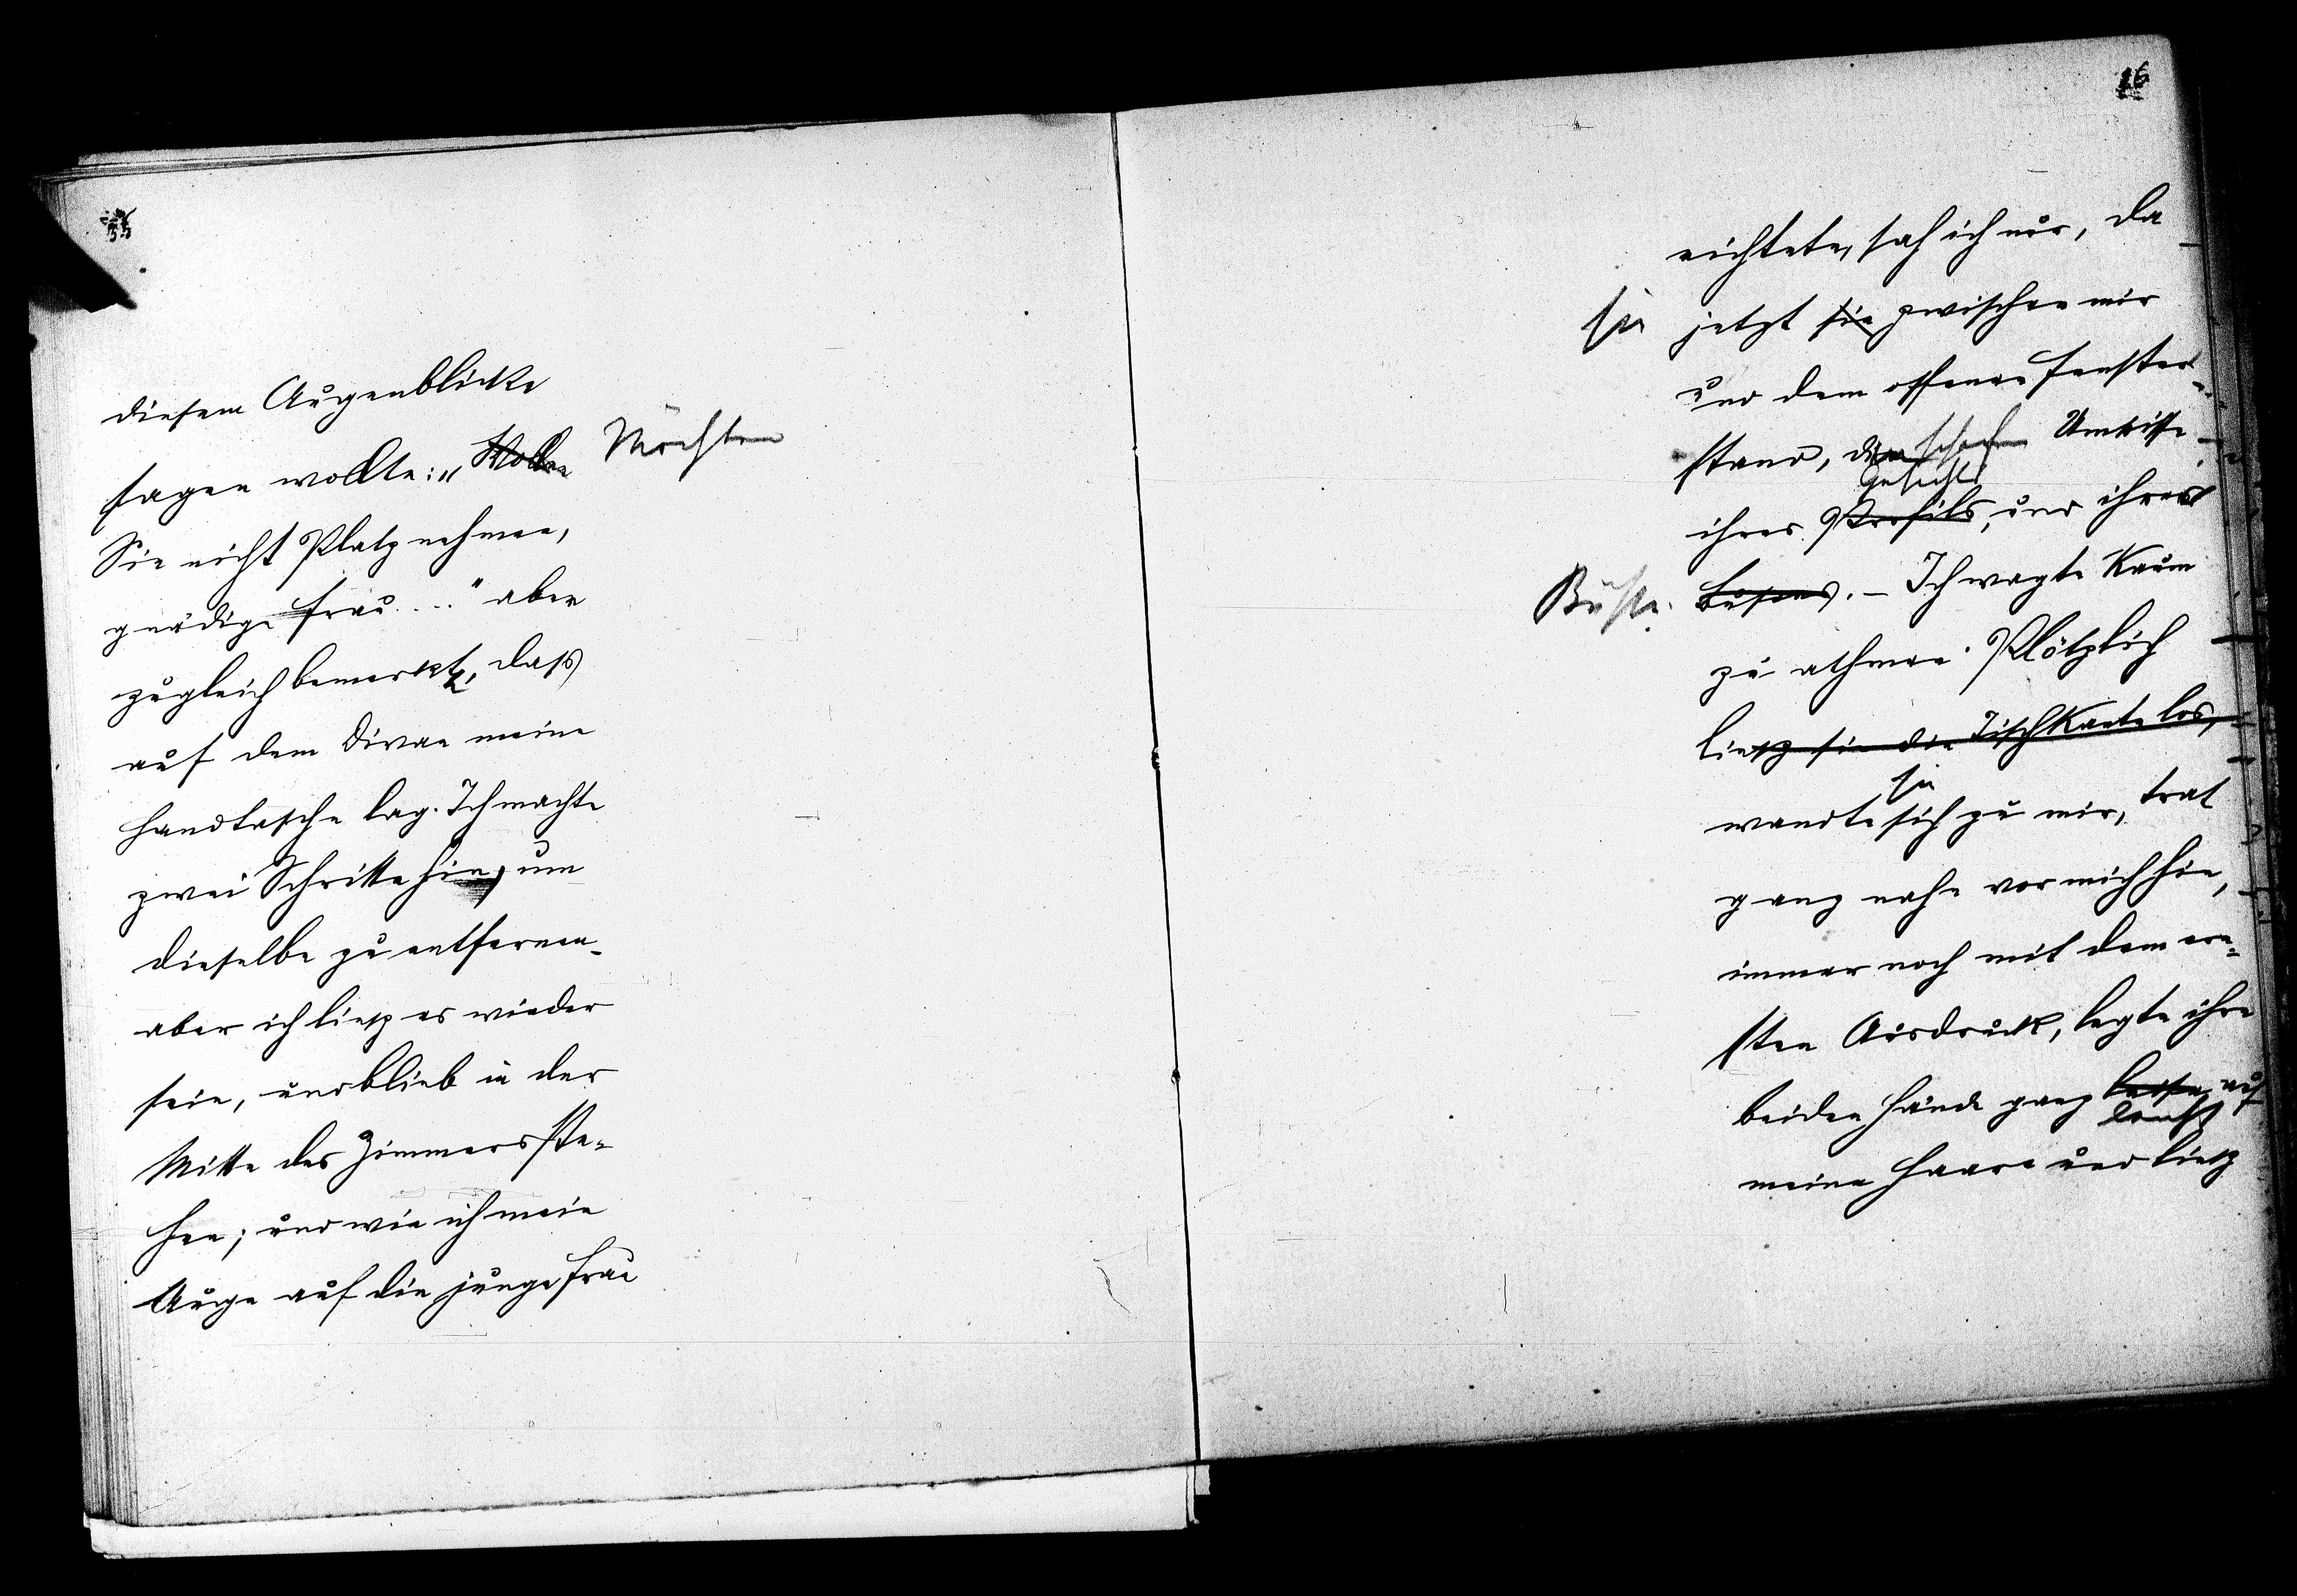 diesem Augenblicke
sagen wollte: „Wollen Möchten
Sie nicht Platz nehmen,
gnädige Frau...." aber
zugleich bemerkt, dass
auf dem Divan meine
Handtasche lag. Ich machte
zwei Schritte hin, um
dieselbe zu entfernen_
aber ich liesz es wieder
sein, und blieb in der
Mitte des Zimmers ste=
hen; und wie ich mein
Auge auf die junge Frau
16
richtete, sah ich nur, da
sie jetzt sie zwischen mir
und dem offenen Fenster
stand, Umrisse
Gesichts
ihres Profils, und ihrer
Büste. Busens. – Ich wagte kaum
zu athmen. Plötzlich
liesz sie die Tischkante los,
sie
wandte sich zu mir, trat
ganz nahe vor mich hin,
immer noch mit dem ern=
sten Ausdruck, legte ihre
beiden Hände ganz leise auf
sanft
meine Haare und liesz